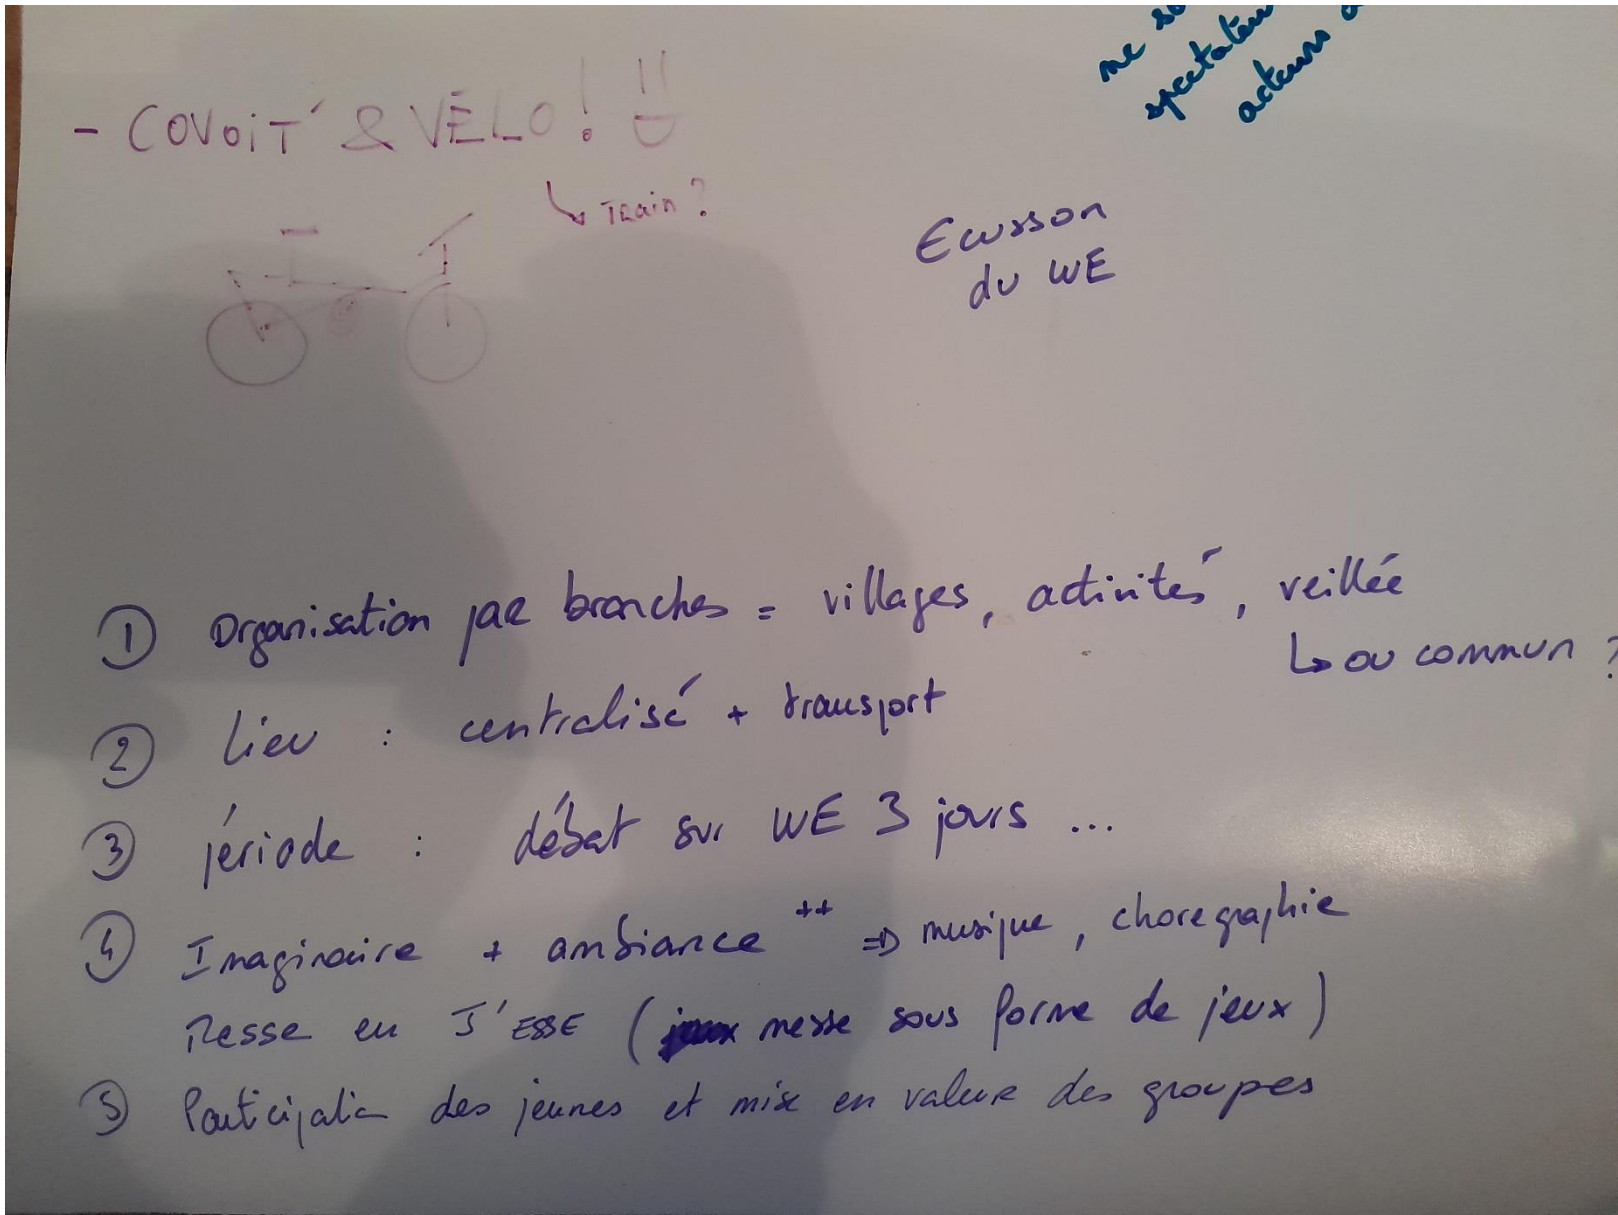 me so
spectateu
acteurs d
- COVOIT' & VÉLO !
↳ TRain ?
Ecusson
du WE
① Organisation paR branches = villages, activités, veillée
↳ ou commun ?
② Lieu : centralisé + transport
③ période : débat sur WE 3 jours ...
④ Imaginaire + ambiance ++ => musique, choregraphie
Messe en J'ESSE (jeux messe sous forme de jeux)
⑤ Participation des jeunes et mise en valeur des groupes